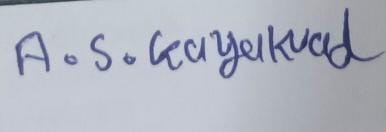 A. S. Gayakvad